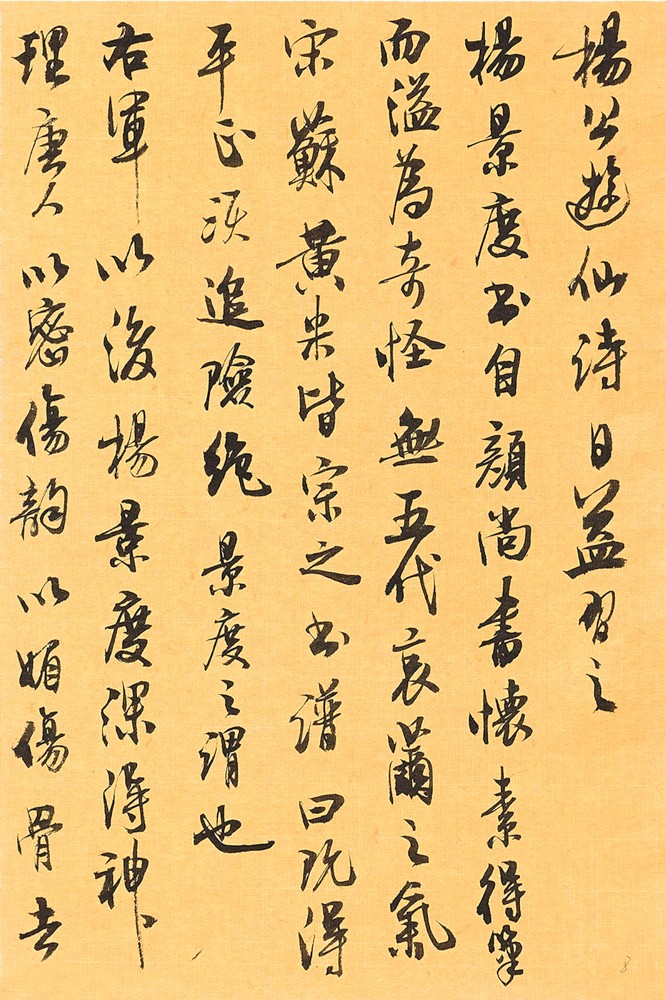 楊公遊仙詩日益習之
楊景度書自顏尚書懷素得筆
而溢為奇怪無五代衰薾之氣
宋蘇黃米皆宗之書譜曰既得
平正須追險絕景度之謂也
右軍以後楊景度深得神
理唐人以密傷韻以媚傷骨去
8